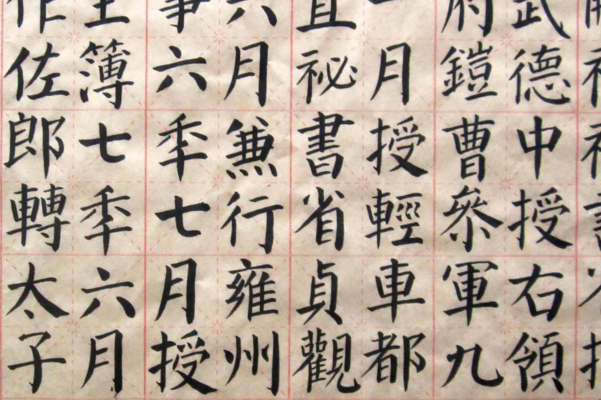 武德中授右領
府鎧曹參軍九
月授輕車都
直祕書省貞觀
六月兼行雍州
事六秊七月授
主簿七秊六月
作佐郎轉太子